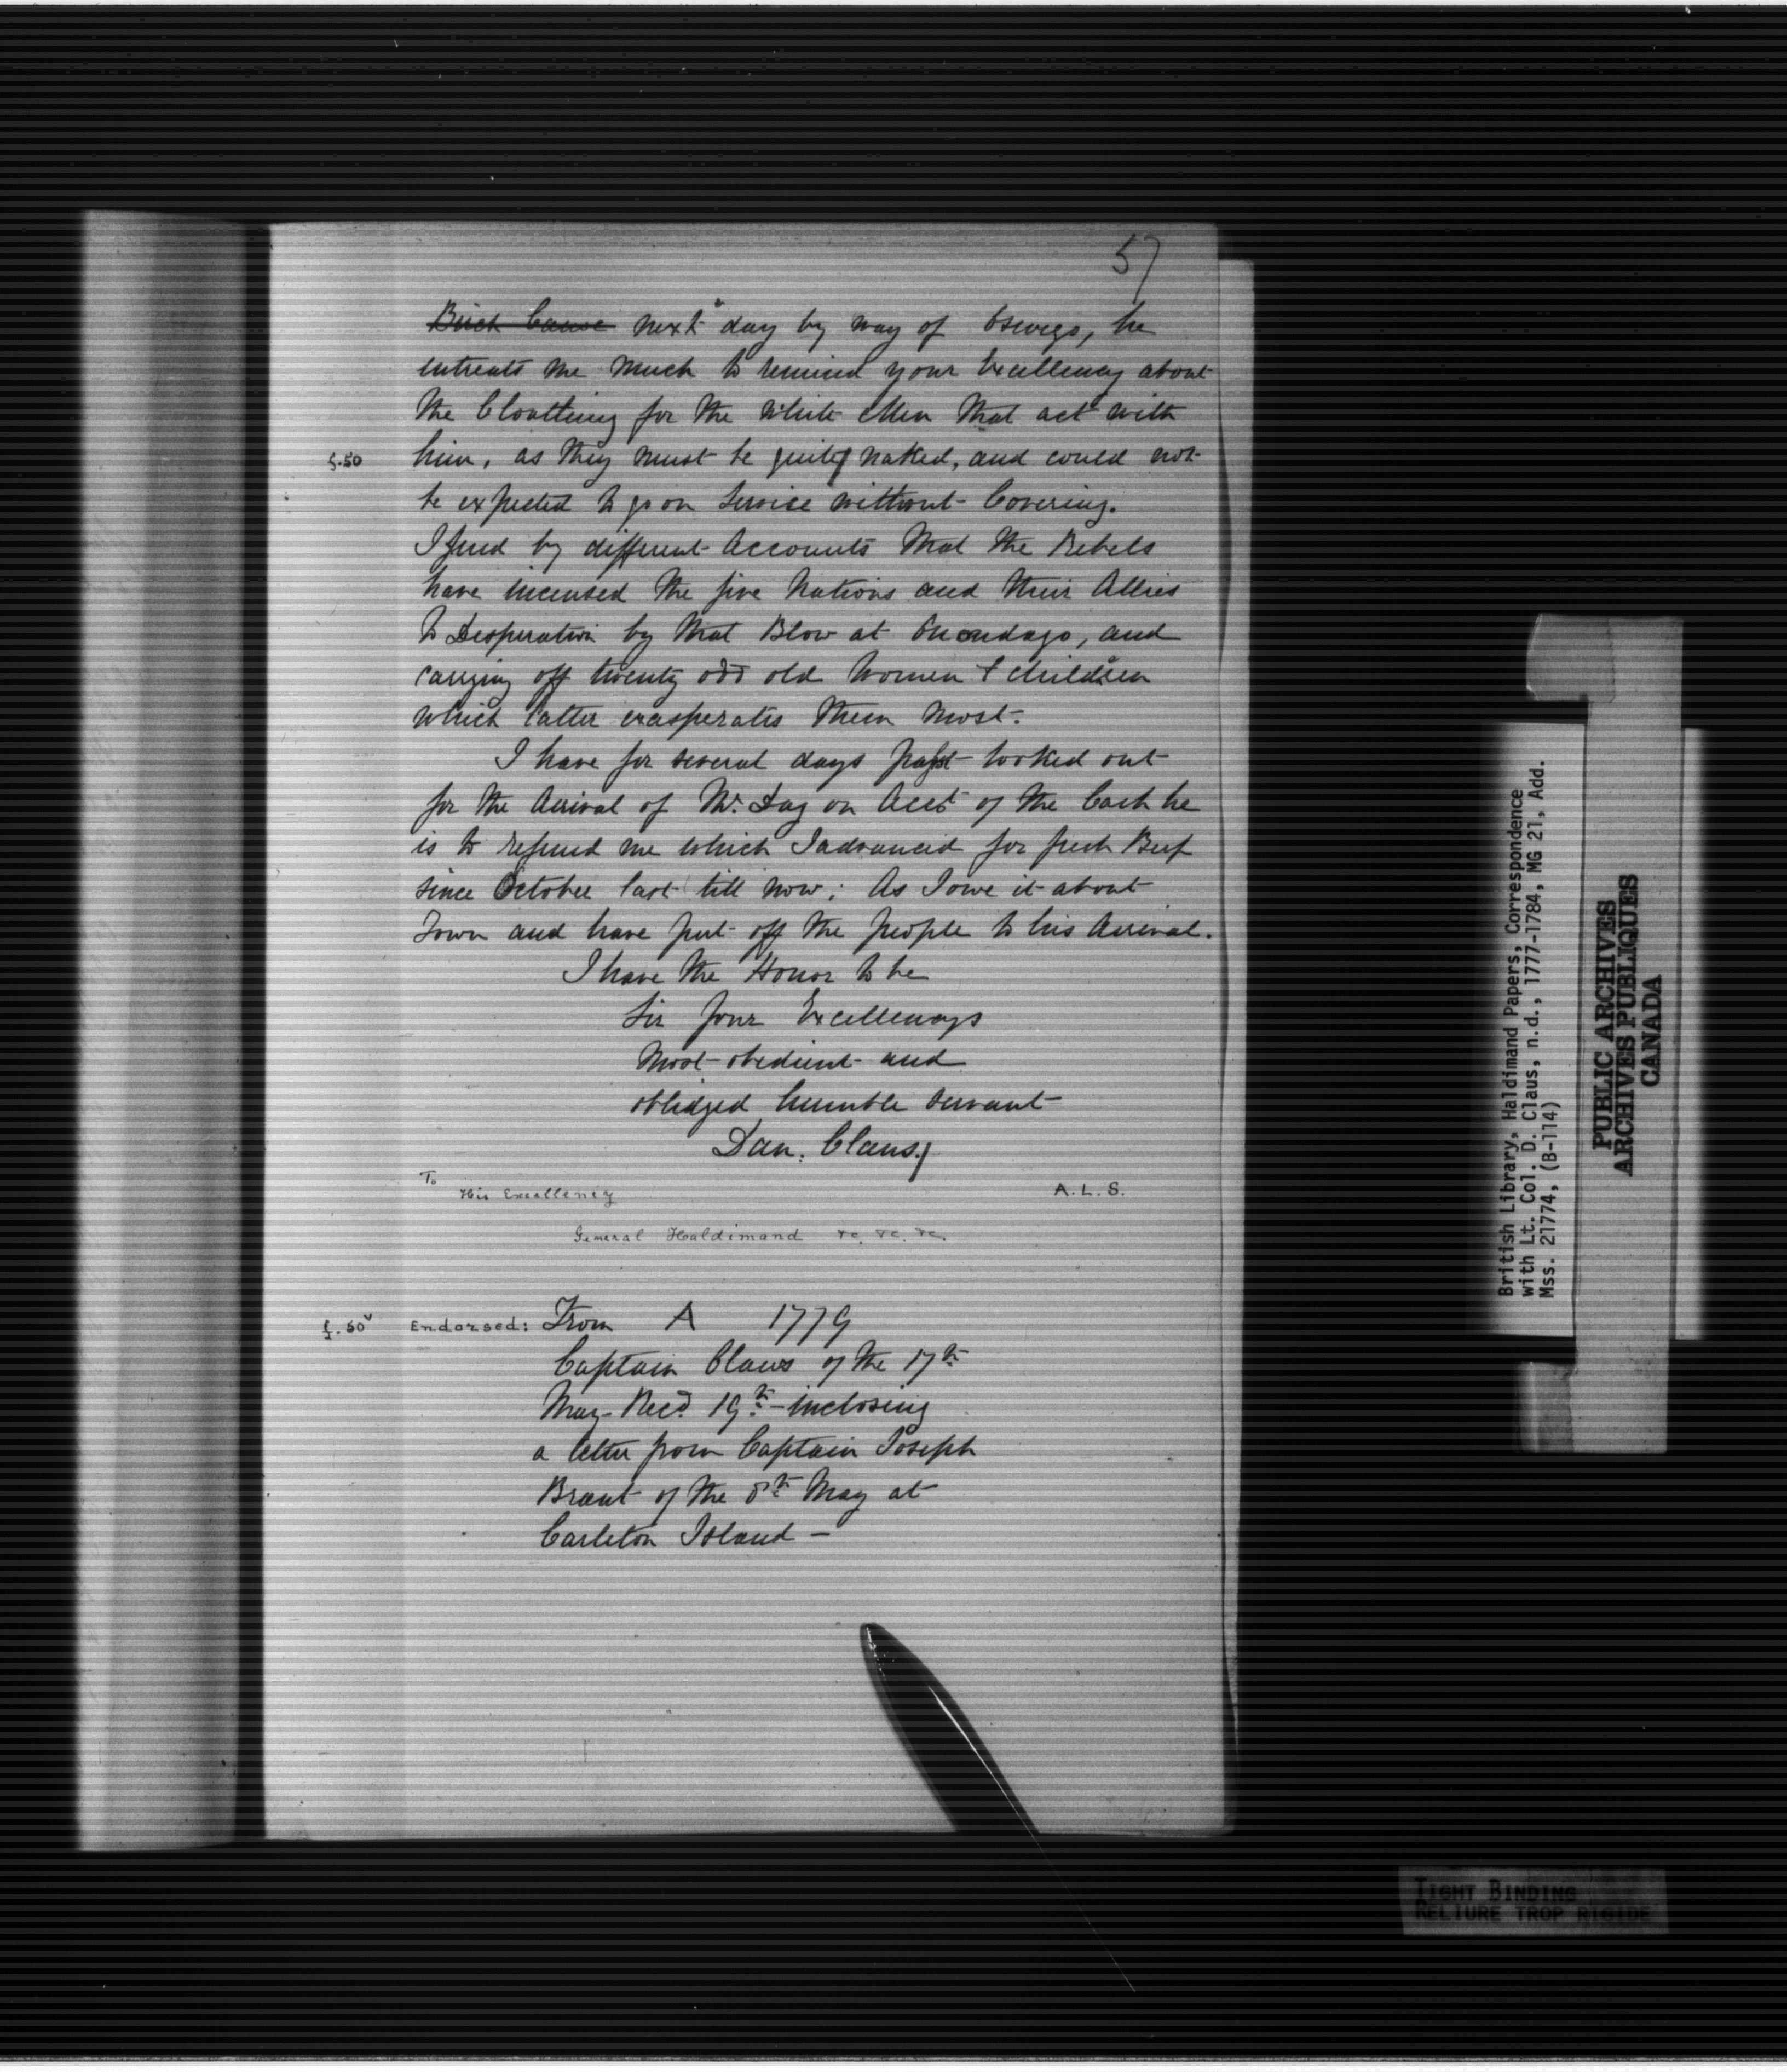 57
Birch Canoe next day by way of Oswego, he
entreats me much to remind your Excellency about
the Cloathing for the White Men that act with
f.50 him, as they must be quite naked, and could not
be expected to go on Service without Covering.
I find by different Accounts that the Rebels
have incensed the five Nations and their Allies
to Desperation by that Blow at Onondago, and
carrying off twenty odd old Women & children
which latter exasperates them most.
I have for several days past looked out
for the Arrival of Mr. Day on Acct of the Cash he
is to refund me which I advanced for fresh Beef
since October last till now; As I owe it about
Town and have put off the people to his Arrival.
I have the Honor to be
Sir Your Excellencys
Most obedient and
oblidged humble Servant
Dan. Claus.
To
His Excellency A.L.S.
General Haldimand &c. &c. &c.
f.50v Endorsed: From A 1779
Captain Claus of the 17th
May Recd 19th inclosing
a letter from Captain Joseph
Brant of the 8th May at
Carleton Island -
British Library, Haldimand Papers, Correspondence
with Lt. Col. D. Claus, n.d., 1777-1784, MG 21, Add.
Mss. 21774, (B-114)
PUBLIC ARCHIVES
ARCHIVES PUBLIQUES
CANADA
TIGHT BINDING
RELIURE TROP RIGIDE